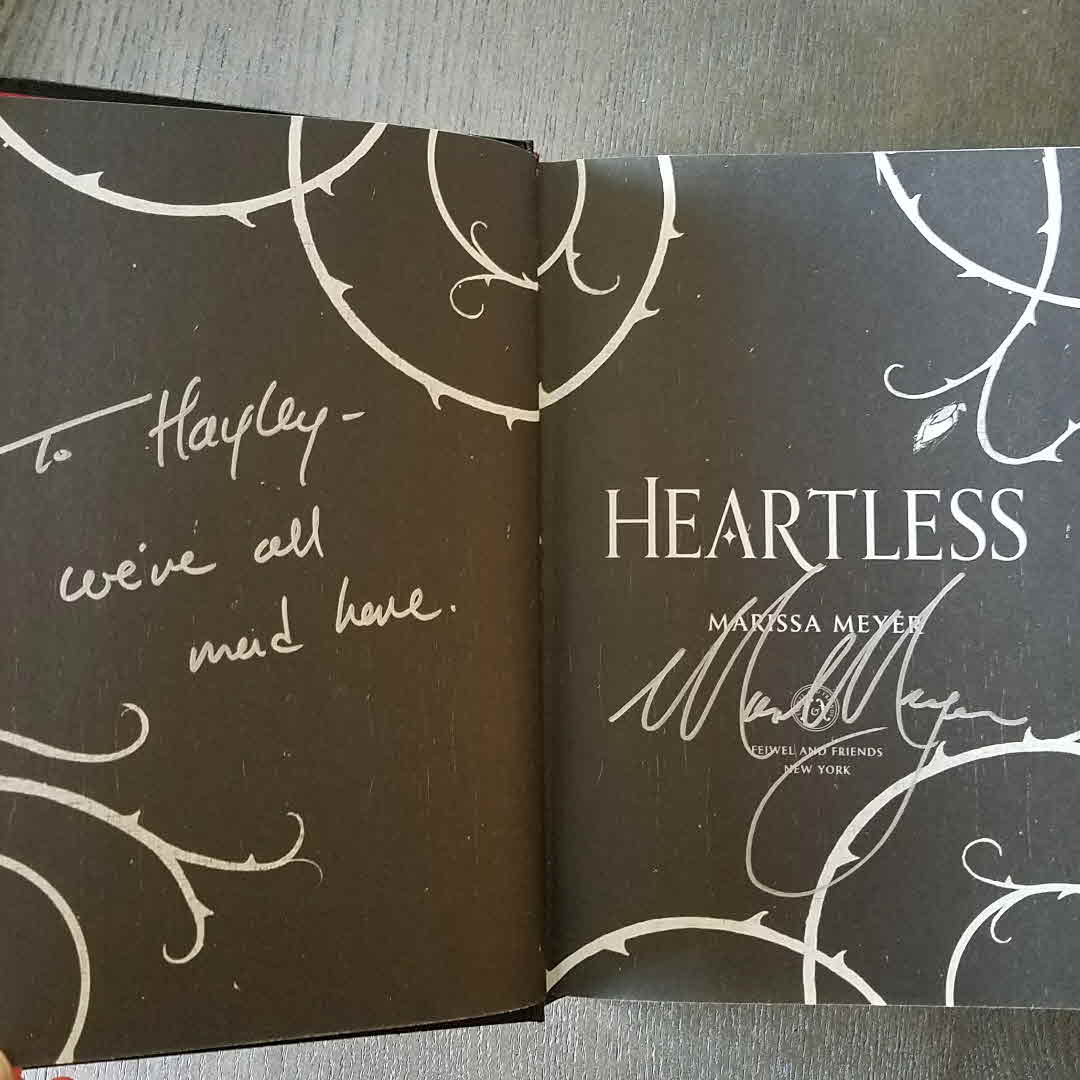 To Hayley-
we're all
mad here.
HEARTLESS
MARISSA MEYER
Marissa Meyer
FEIWEL AND FRIENDS
NEW YORK